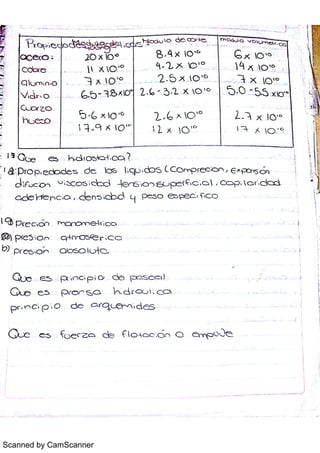 Propiedades elásticas Modulo de corte modulo volumetrico
acero: 20 x 10¹⁰ 8.4 x 10¹⁰ 6 x 10¹⁰
cobre 11 x 10¹⁰ 4.2 x 10¹⁰ 14 x 10¹⁰
aluminio 7 x 10¹⁰ 2.5 x 10¹⁰ 7 x 10¹⁰
Vidrio 6.5-7.8 x 10¹⁰ 2.6-3.2 x 10¹⁰ 5.0-5.5 x 10¹⁰
Cuarzo 5.6 x 10¹⁰ 2.6 x 10¹⁰ 2.7 x 10¹⁰
hueco 17.9 x 10¹⁰ 12 x 10¹⁰ 17 x 10¹⁰
Que es hidrostatica?
Propiedades de los liquidos (Comprecion, Expansión
difucion viscosidad tension superficial, capilaridad
adeherencia, densidad y peso especifico
Preción manometrica
presion atmosferica
b) presión absoluta
Que es principio de pascal
Que es prensa hidraulica
principio de arquemides
Que es fuerza de flotacion o empuje
Scanned by CamScanner